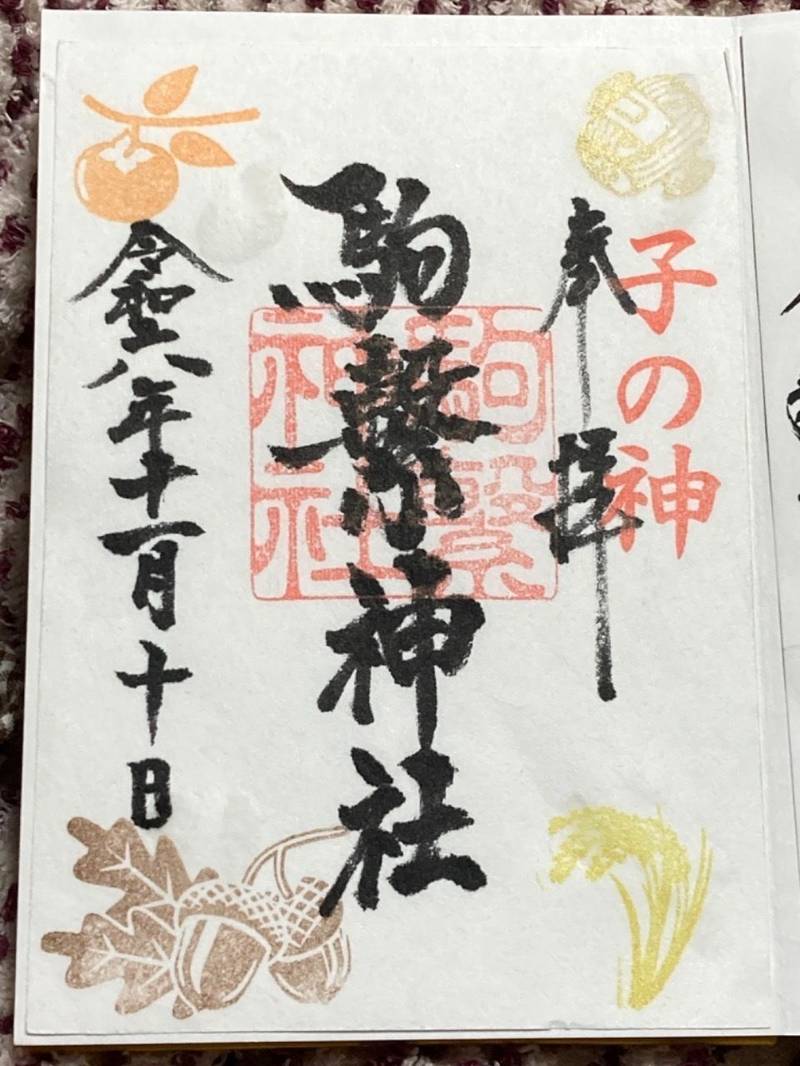 子の神
奉拝
駒繋神社
駒繋
神社
令和六年十一月十日